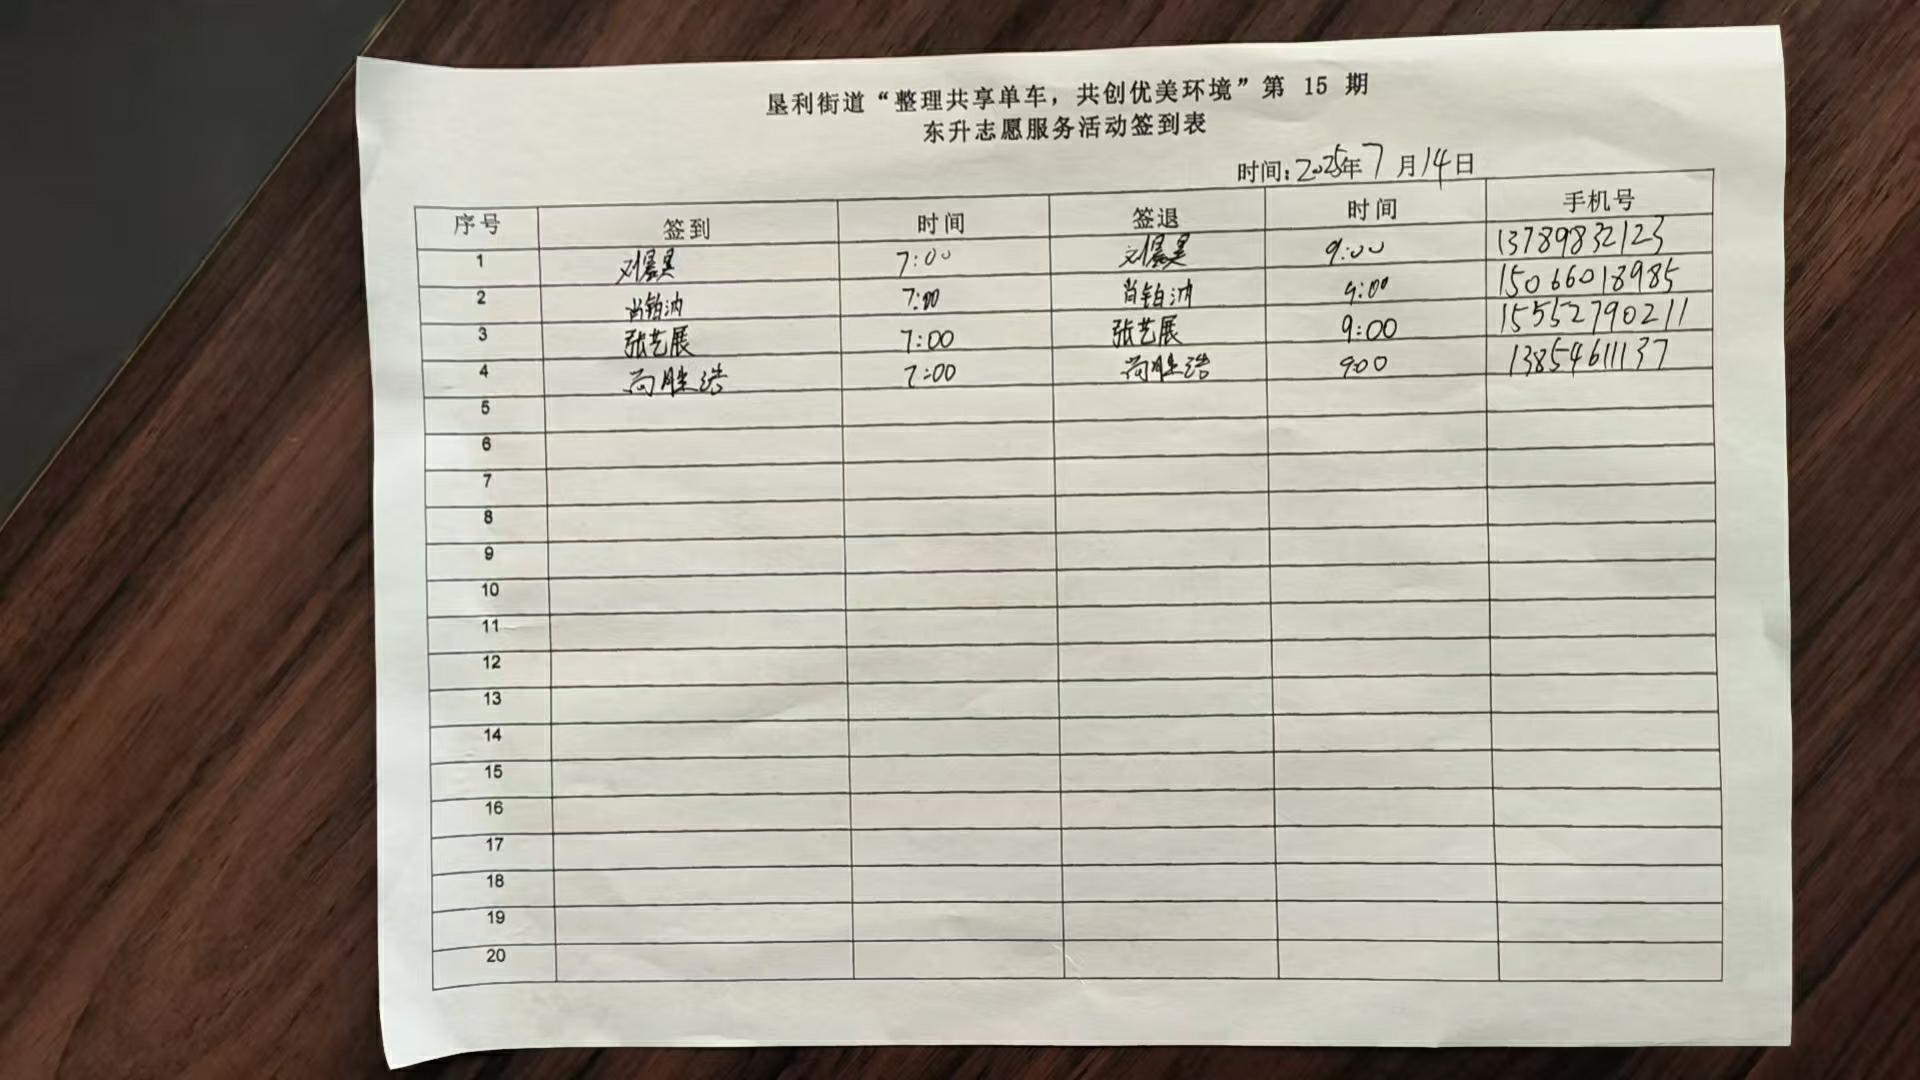 垦利街道“整理共享单车，共创优美环境”第 15 期
东升志愿服务活动签到表
时间:2025年7月14日
序号 签到 时间 签退 时间 手机号
1 刘晨昊 7:00 刘晨昊 9:00 13789832123
2 尚铂 7:00 尚铂 9:00 15066018985
3 张艺展 7:00 张艺展 9:00 15552790211
4 尚胜浩 7:00 尚胜浩 900 13854611137
5
6
7
8
9
10
11
12
13
14
15
16
17
18
19
20